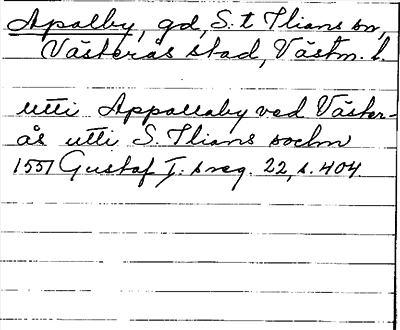 Apalby, gd, S:t Ilians sn,
Västerås stad, Västm. l.
utti Appallaby ved Väster-
ås utti S. Ilians sochn
1551 Gustaf I:s reg. 22, s. 404